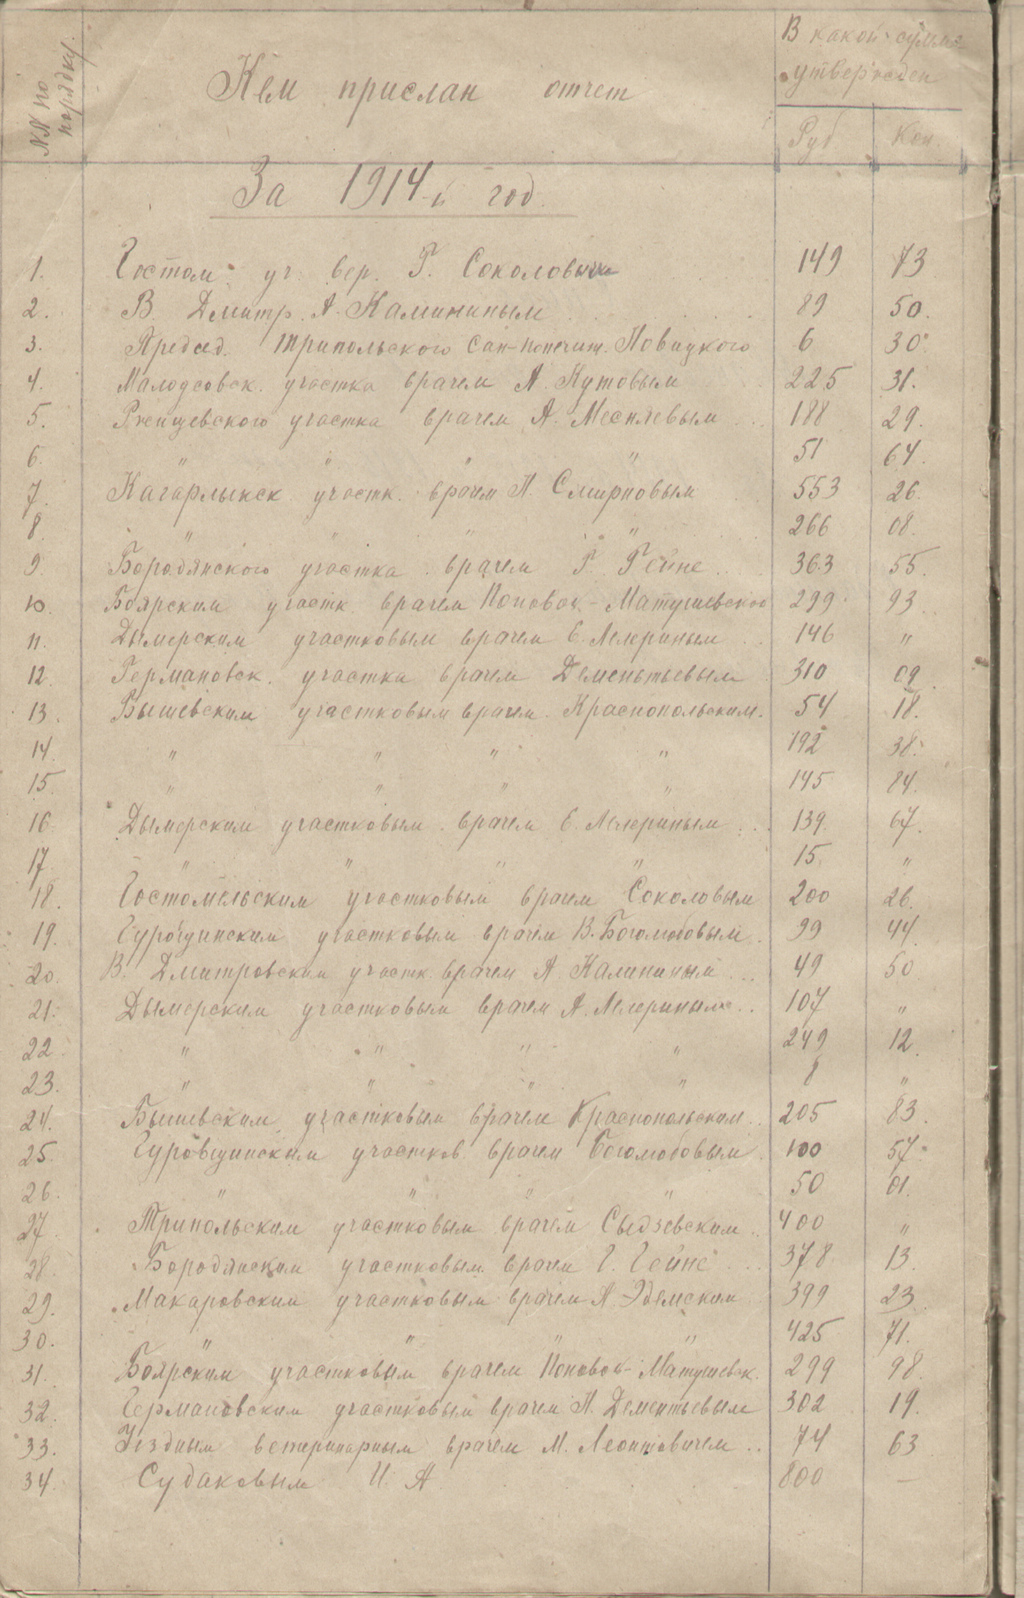 NN по порядку
Кем прислан отчет
В какой сумме утвержден
Руб. Коп.
За 1914-й год.
1. Гостом. уч. вер. Г. Соколовым 149 73
2. В. Дмитр. А. Калининым 89 50.
3. Председ. Трипольского Сан-попечит. Новицкого 6 30
4. участка врачем А. Кутовым 225 31.
5. Ржищевского участка врачем А. 188 29.
6. " " " " 51 64.
7. Кагарлыкск. участк. врачем А. Смирновым 553 26.
8. " " " " 266 08.
9. Бородянского участка врачем Г. Гейне 363 55.
10. Боярским участк. врачем Поповой-Матушевской 299 93
11. Дымерским участковым врачем Е. 146 "
12. Германовск. участка врачем Дементьевым 310 09
13. Бышевским участковым врачем Краснопольским. 54 18.
14. " " " " 192 38.
15. " " " " 145 84.
16. Дымерским участковым врачем Е. 139 67.
17. " " " " 15 "
18. Гостомельским участковым врачем Соколовым 200 26.
19. Гуровщинским участковым врачем В. Боголюбовым 99 44
20. В. Дмитровским участк. врачем А. Калининым 49 50
21. Дымерским участковым врачем А. 107 "
22. " " " " 249 12.
23. " " " " 8 "
24. Бышевским участковым врачем Краснопольским 205 83.
25. Гуровщинским участков. врачем Боголюбовым 100 57.
26. " " " " 50 01.
27. Трипольским участковым врачем 400 "
28. Бородянским участковым врачем Г. Гейне 378 13.
29. Макаровским участковым врачем А. Эдемским 399 23
30. " " " " 425 71.
31. Боярским участковым врачем Поповой-Матушевск. 299 98
32. Германовским участковым врачем А. Дементьевым 302 19.
33. Уездным ветеринарным врачем М. Леонтовичем 74 63
34. Судаковым И. А 800 —